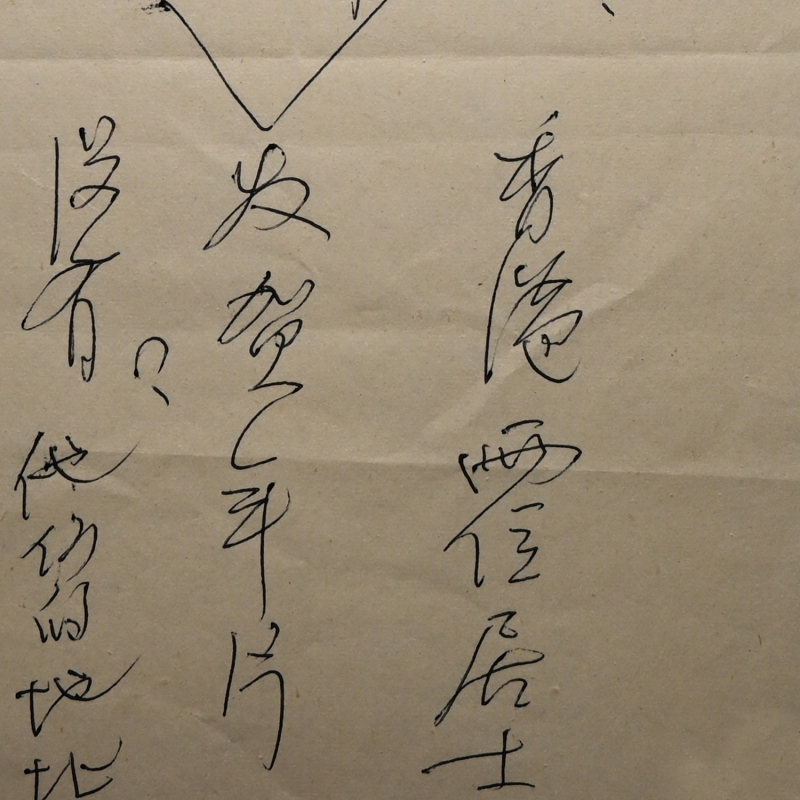 香港两位居士
发贺年片
没有他们的地址